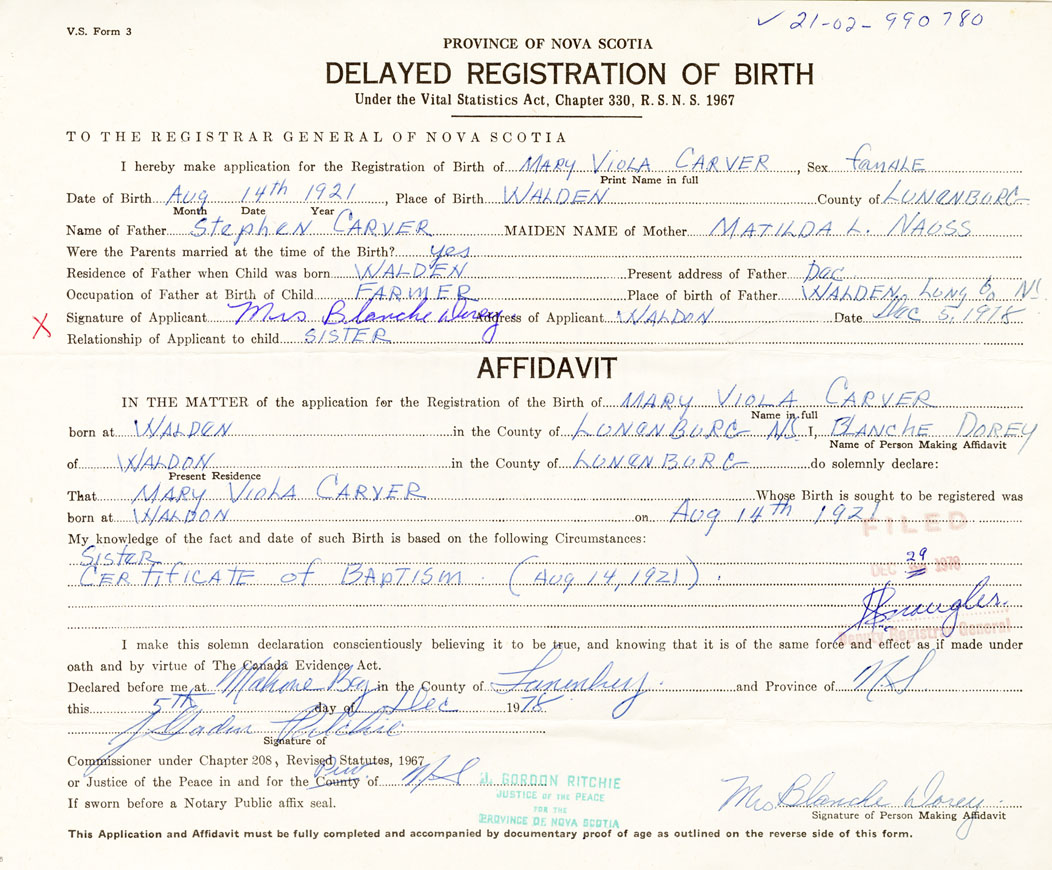 V.S. Form 3
✓ 21-02-990780
PROVINCE OF NOVA SCOTIA
DELAYED REGISTRATION OF BIRTH
Under the Vital Statistics Act, Chapter 330, R.S.N.S. 1967
TO THE REGISTRAR GENERAL OF NOVA SCOTIA
I hereby make application for the Registration of Birth of MARY VIOLA CARVER, Sex famALE
Print Name in full
Date of Birth Aug 14th 1921, Place of Birth WALDEN County of LUNENBURG
Month Date Year
Name of Father Stephen CARVER MAIDEN NAME of Mother MATILDA L. NAUSS
Were the Parents married at the time of the Birth? yes
Residence of Father when Child was born WALDEN Present address of Father Dec
Occupation of Father at Birth of Child FARMER Place of birth of Father WALDEN, LUNG Co NS.
X Signature of Applicant Mrs Blanche Dorey Address of Applicant WALDON Date Dec 5, 1978
Relationship of Applicant to child SISTER
AFFIDAVIT
IN THE MATTER of the application for the Registration of the Birth of MARY VIOLA CARVER
Name in full
born at WALDEN in the County of LUNENBURG NS I, BLANCHE DOREY
Name of Person Making Affidavit
of WALDON in the County of LUNENBURG do solemnly declare:
Present Residence
That MARY VIOLA CARVER Whose Birth is sought to be registered was
born at WALDON on Aug 14th 1921
FILED
My knowledge of the fact and date of such Birth is based on the following Circumstances:
SISTER
29
CERTIFICATE of BAPTISM (Aug 14, 1921).
DEC 1978
Deputy Registrar General
I make this solemn declaration conscientiously believing it to be true, and knowing that it is of the same force and effect as if made under
oath and by virtue of The Canada Evidence Act.
Declared before me at Mahone Bay in the County of Lunenburg. and Province of NS
this 5th day of Dec 1978
J Gordon Ritchie
Signature of
Commissioner under Chapter 208, Revised Statutes, 1967
or Justice of the Peace in and for the County of Prov NS
J. GORDON RITCHIE
JUSTICE OF THE PEACE
FOR THE
PROVINCE DE NOVA SCOTIA
If sworn before a Notary Public affix seal.
Mrs Blanche Dorey.
Signature of Person Making Affidavit
This Application and Affidavit must be fully completed and accompanied by documentary proof of age as outlined on the reverse side of this form.